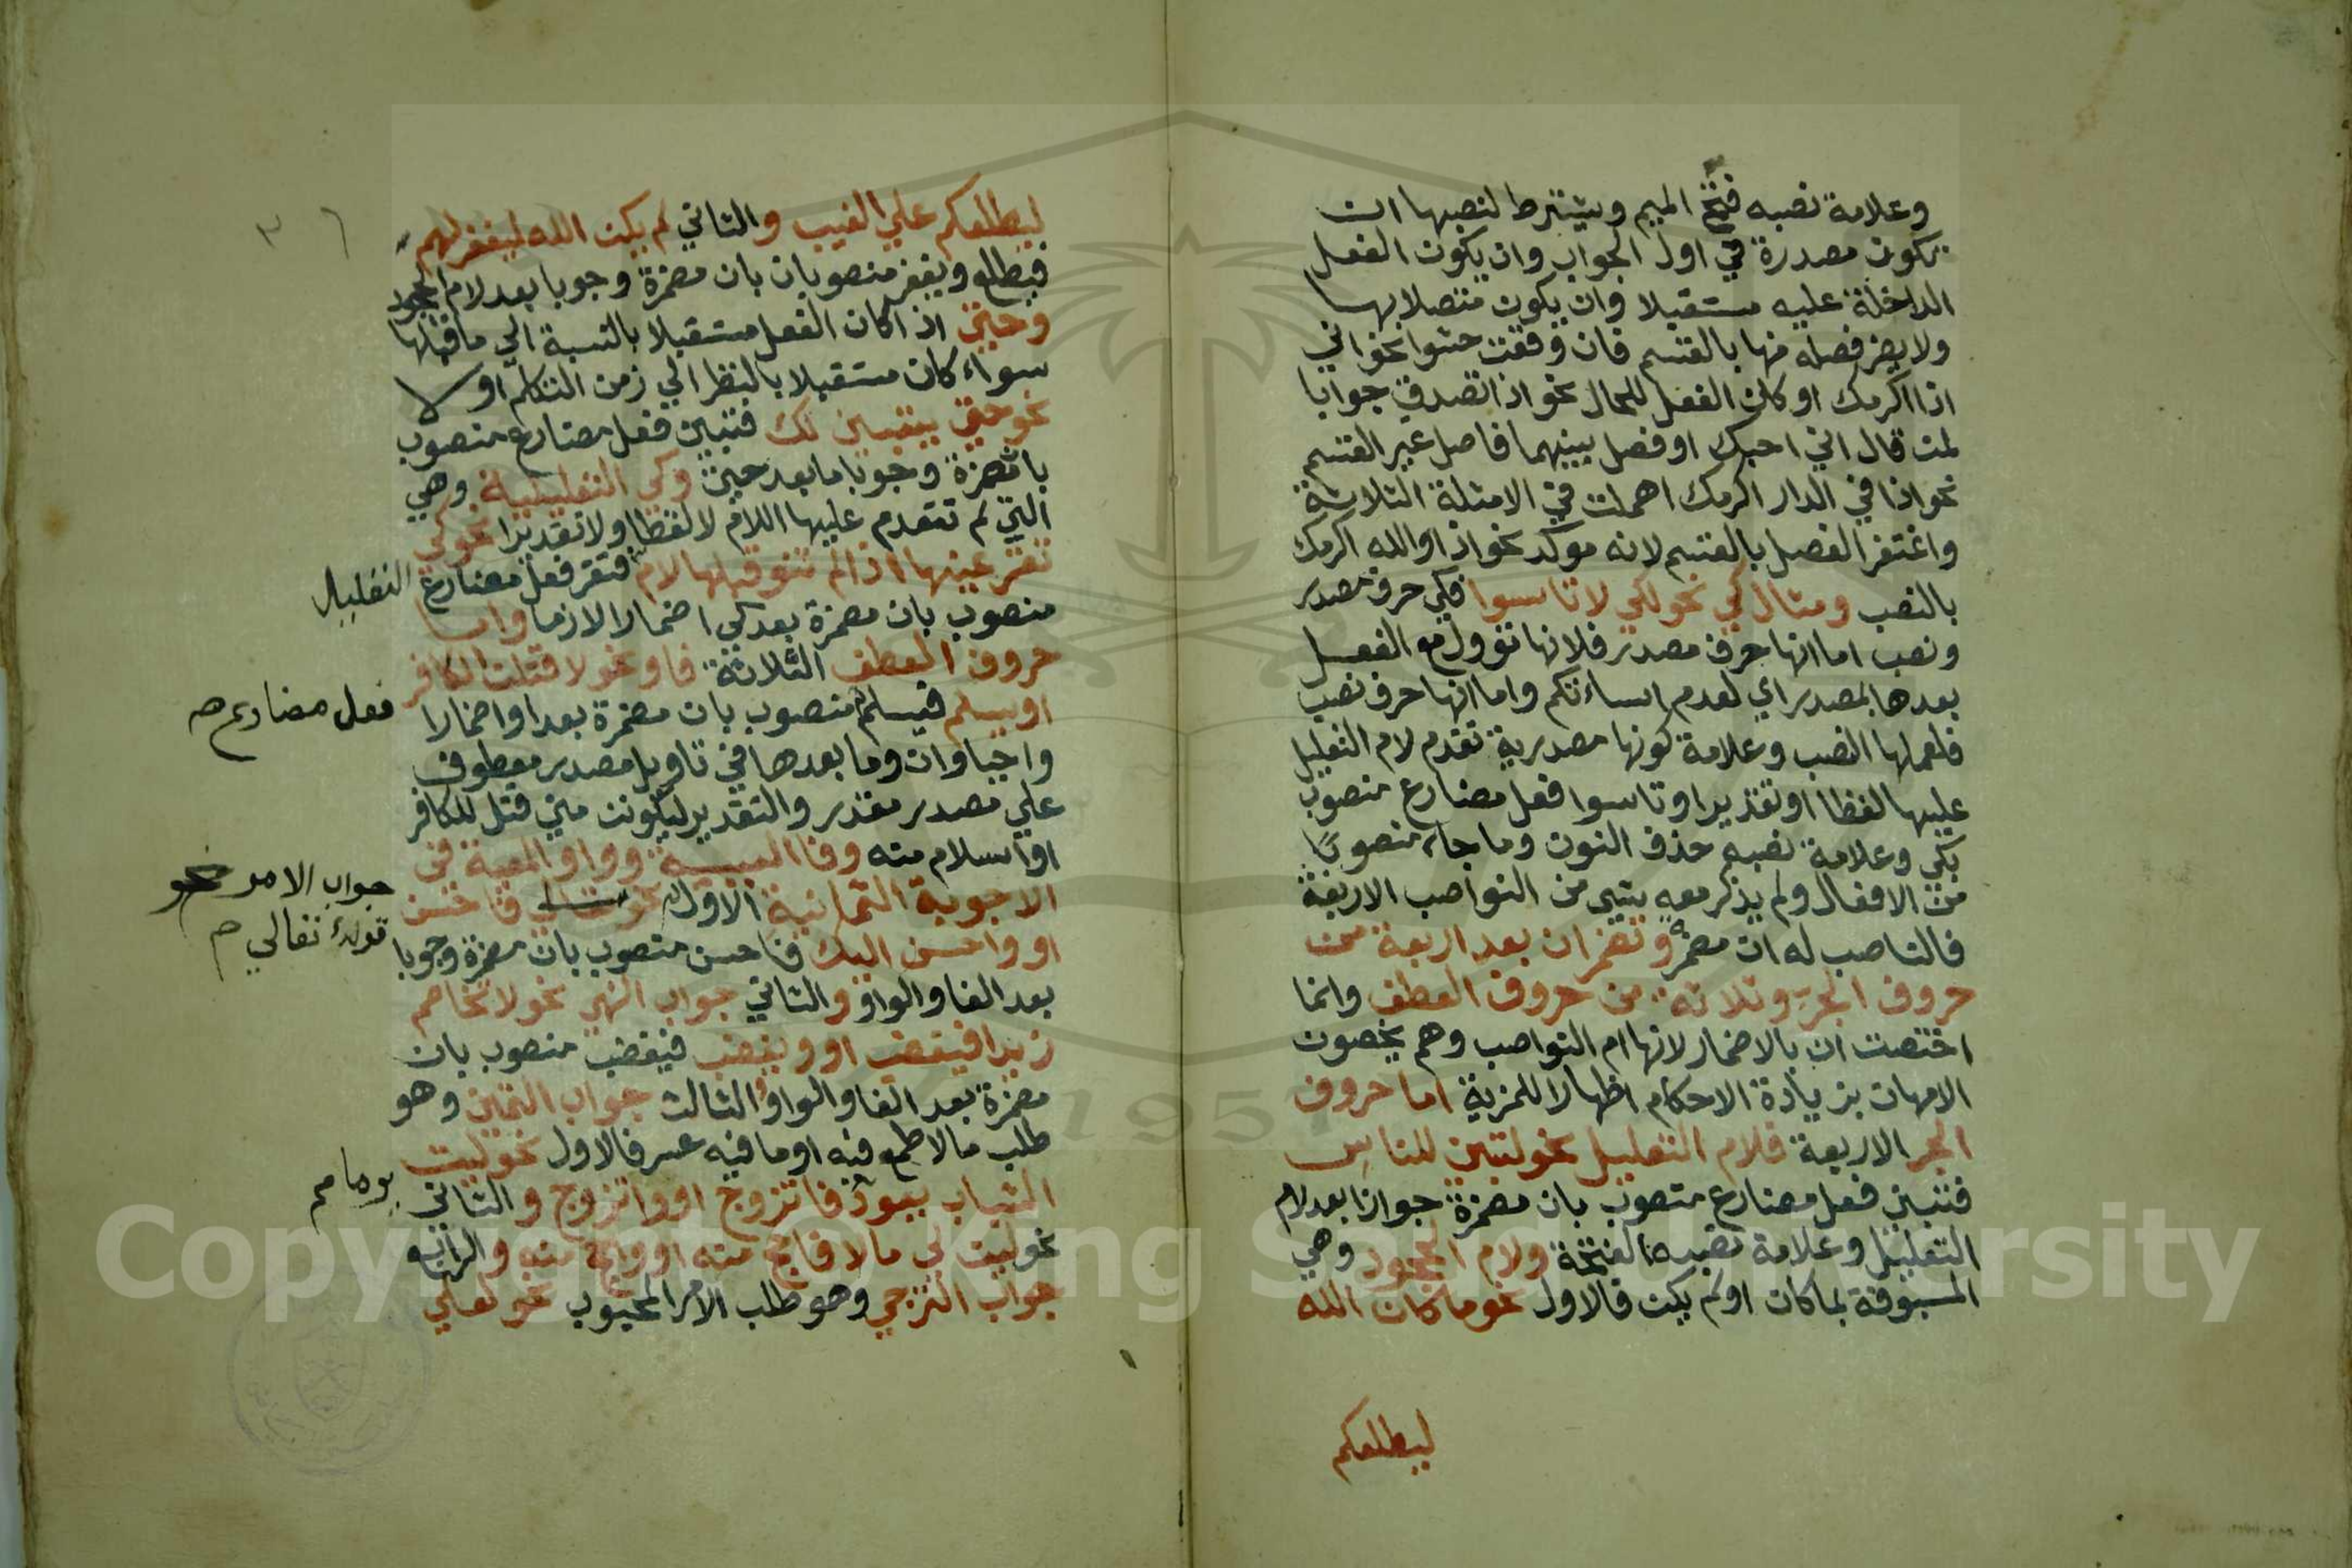 وعلامة نصبه فتح الميم ويشترط لنصبها ان
تكون مصدرة في اول الجواب وان يكون الفعل
الداخلة عليه مستقبلا وان يكون متصلا بها
ولا يضر فصله منها بالقسم فان وقعت حشوا نحو اني
اذا اكرمك او كان الفعل للحال نحو اذا تصدق جوابا
لمن قال اني احبك او فصل بينهما فاصل غير القسم
نحو اذا في الدار اكرمك اهملت في الامثلة الثلاثة
واغتفر الفصل بالقسم لانه موكد نحو اذا والله اكرمك
بالنصب ومثال كي نحو لكي لا تاسوا فكي حرف مصدر
ونصب اما انها حرف مصدر فلانها تؤول مع الفعل
بعدها بالمصدر اي لعدم اساءتكم واما انها حرف نصب
فلعملها النصب وعلامة كونها مصدرية تقدم لام التعليل
عليها لفظا او تقديرا وتاسوا فعل مضارع منصوب
بكي وعلامة نصبه حذف النون وما جاء منصوبًا
من الافعال ولم يذكر معه شيء من النواصب الاربعة
فالناصب له ان مضمرة وتضمر ان بعد اربعة من
حروف الجر وثلاثة من حروف العطف وانما
اختصت ان بالاضمار لانها ام النواصب وهم يخصون
الامهات بزيادة الاحكام اظهارا للمزية اما حروف
الجر الاربعة فلام التعليل نحو لتبين للناس
فتبين فعل مضارع منصوب بان مضمرة جوازا بعد لام
التعليل وعلامة نصبه الفتحة ولام الجحود وهي
المسبوقة بما كان او لم يكن فالاول نحو ما كان الله
ليطلعكم
ليطلعكم علي الغيب والثاني لم يكن الله ليغفر لهم
فيطلع ويغفر منصوبان بان مضمرة وجوبا بعد لام الجحود
وحتي اذا كان الفعل مستقبلا بالنسبة الي ما قبلها
سواء كان مستقبلا بالنظر الي زمن التكلم او لا
نحو حتي يتبين لك فتبين فعل مضارع منصوب
بان مضمرة وجوبا ما بعد حتي وكي التعليلية وهي
التي لم تتقدم عليها اللام لا لفظا ولا تقديرا نحو كي
تقر عينها اذا لم تنو قبلها لام فتقر فعل مضارع
التعليل
منصوب بان مضمرة بعد كي اضمارا لازما واما
حروف العطف الثلاثة فاو نحو لا قتلن الكافر
او يسلم فيسلم منصوب بان مضمرة بعد او اضمارا
فعل مضارع صح
واجبا وان وما بعدها في تاويل مصدر معطوف
علي مصدر مقدر والتقدير ليكونن مني قتل للكافر
او اسلام منه وفا السببية وواو المعية في
الاجوبة الثمانية الاول نحو تعالي فاحسن
جواب الامر نحو
قوله تعالي صح
او واحسن اليك فاحسن منصوب بان مضمرة وجوبا
بعد الفا والواو والثاني جواب النهي نحو لا تخاصم
زيدا فيغضب او ويغضب فيغضب منصوب بان
مضمرة بعد الفا والواو والثالث جواب التمني وهو
طلب ما لا طمع فيه او ما فيه عسر فالاول نحو ليت
الشباب يعود فاتزوج او واتزوج والثاني
يوما صح
نحو ليت لي مالا فاحج منه او واحج منه والرابع
جواب الترجي وهو طلب الامر المحبوب نحو لعلي
Copyright © King Saud University
1957